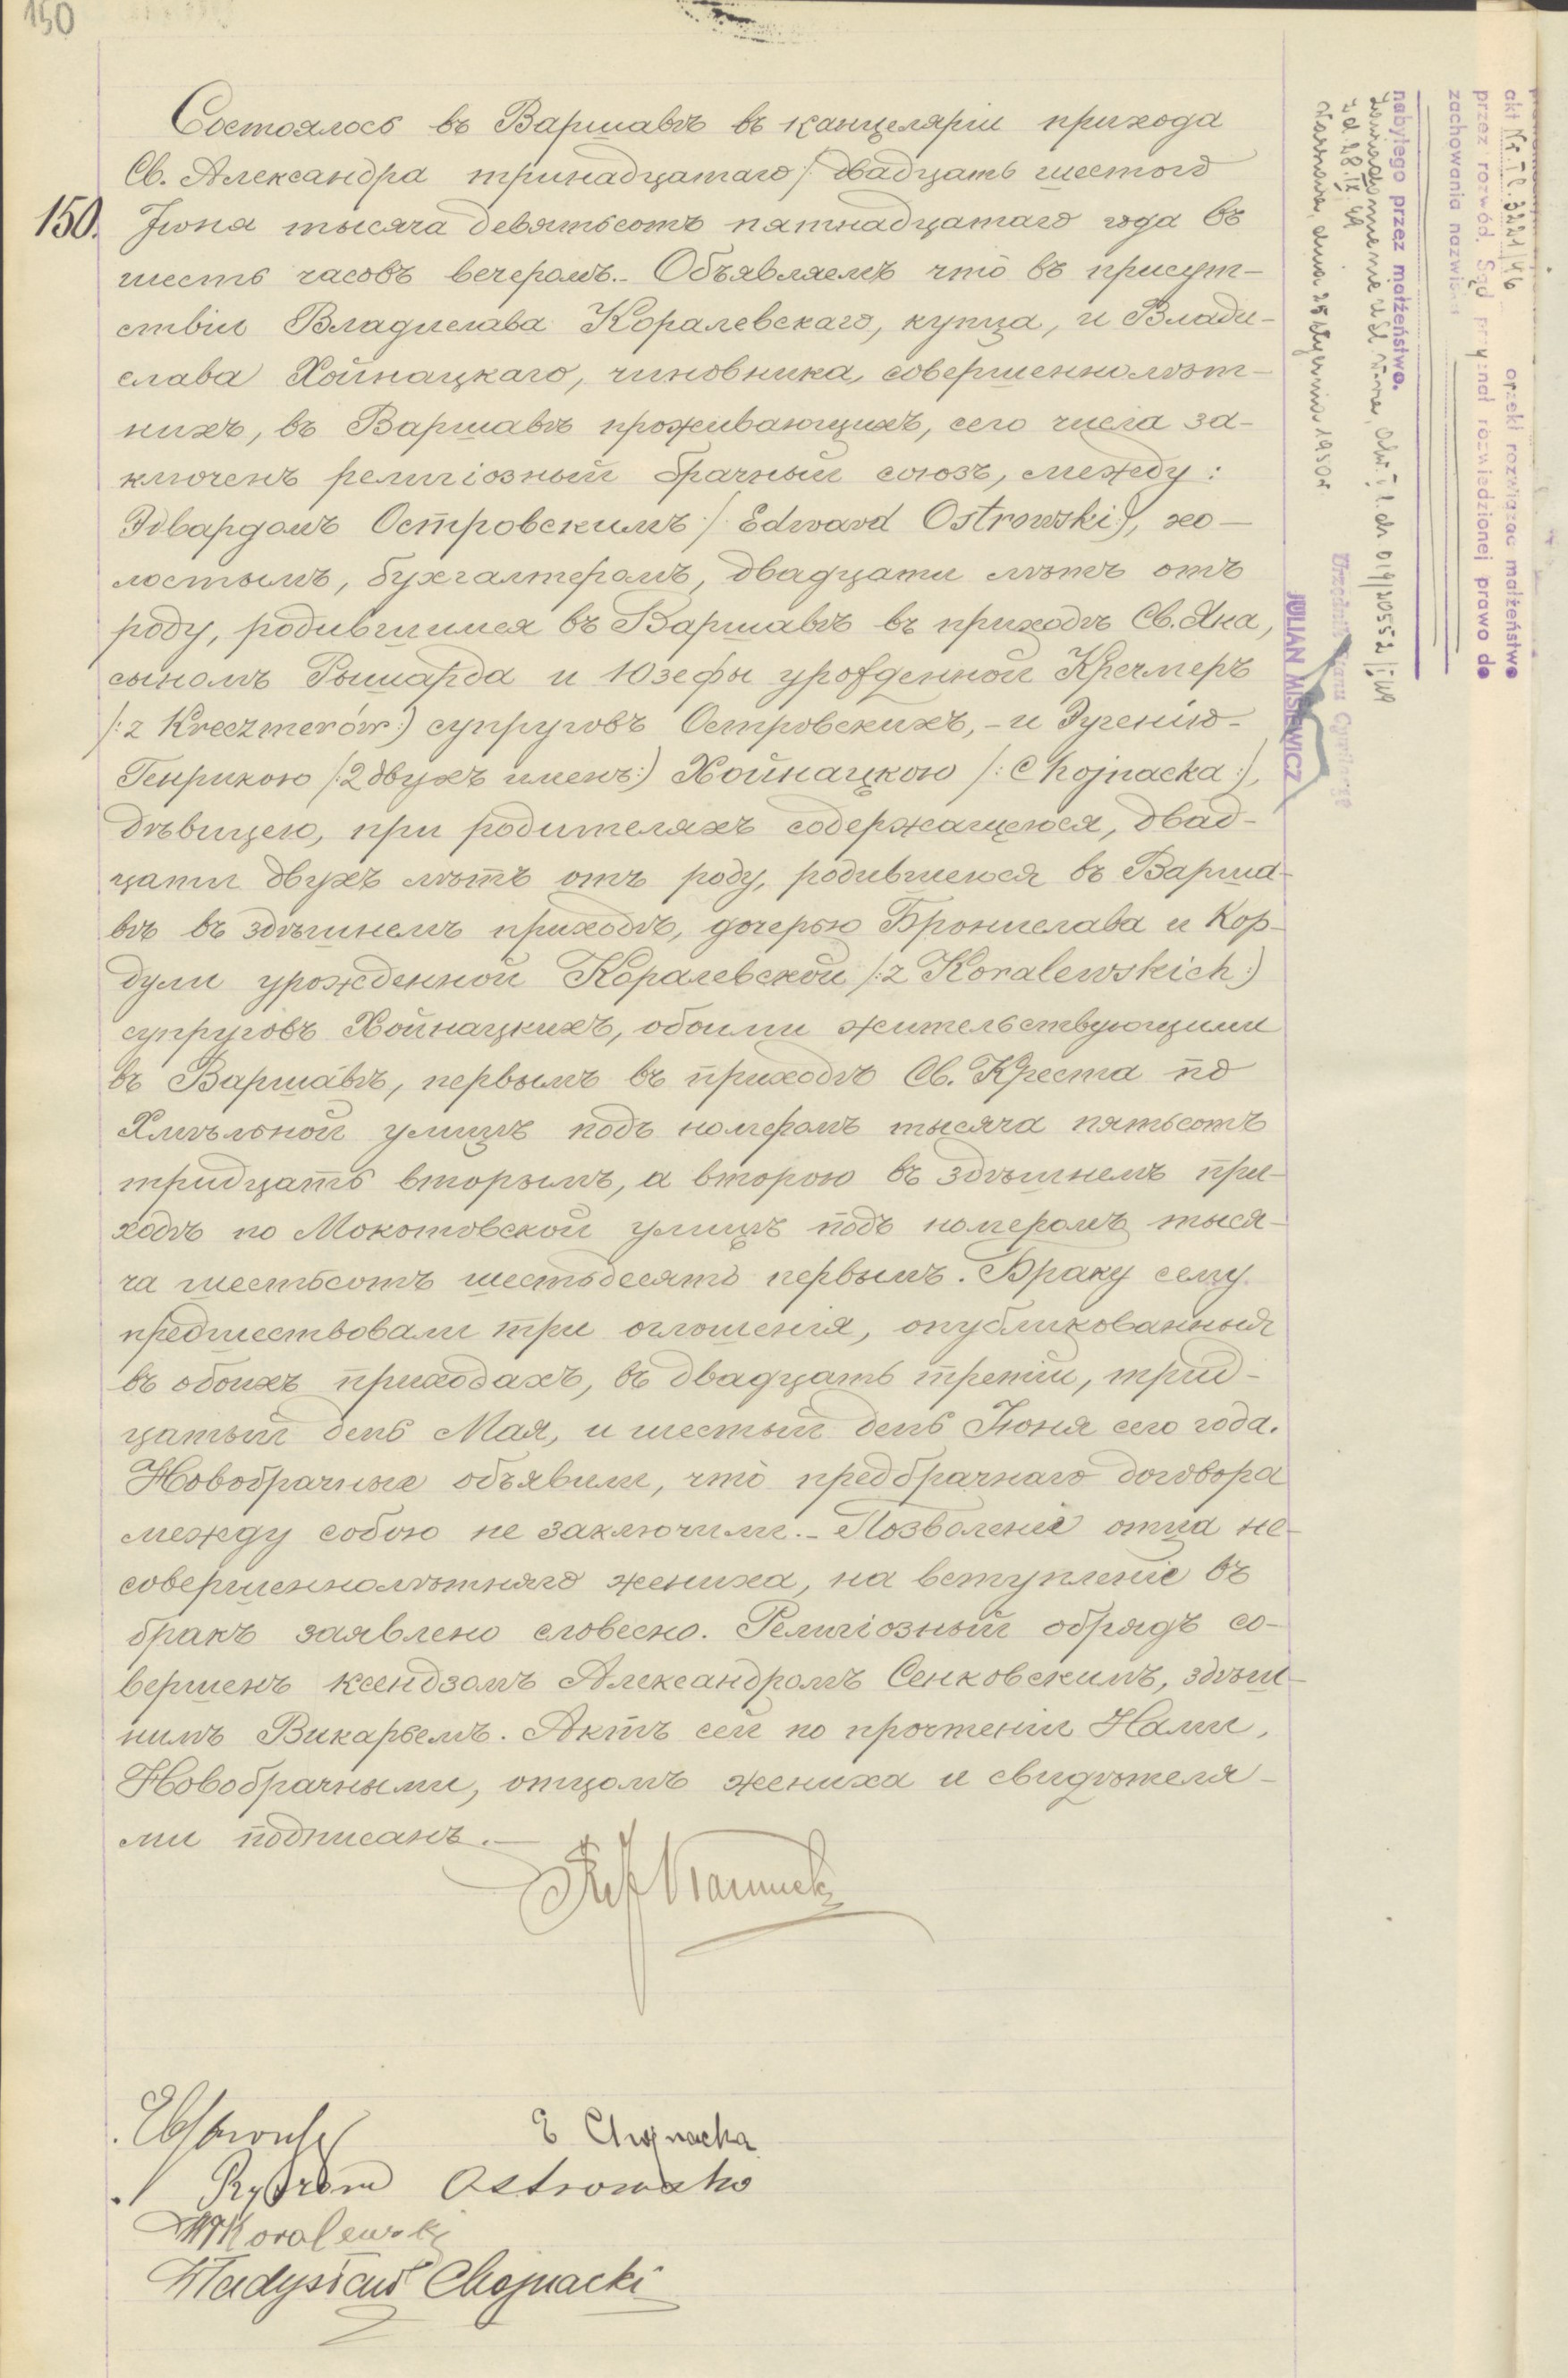 150
Состоялось въ Варшавѣ въ канцеляріи прихода
Св. Александра тринадцатаго / двадцать шестого
150. Іюня тысяча девятьсотъ пятнадцатаго года въ
шесть часовъ вечеромъ.- Объявляемъ что въ присут-
ствіи Владислава Коралевскаго, купца, и Влади-
слава Хойнацкаго, чиновника, совершеннолѣт-
нихъ, въ Варшавѣ проживающихъ, сего числа за-
ключенъ религіозный брачный союзъ, между:
Эдвардомъ Островскимъ /: Edward Ostrowski:), хо-
лостымъ, бухгалтеромъ, двадцати лѣтъ отъ
роду, родившимся въ Варшавѣ въ приходѣ Св. Яна,
сыномъ Рышарда и Юзефы урожденной Кречмеръ
/: z Kreczmerów:) супруговъ Островскихъ, - и Эугеніею-
Генрикою /: 2 двухъ именъ:) Хойнацкою /: Chojnacka:),
дѣвицею, при родителяхъ содержащеюся, двад-
цати двухъ лѣтъ отъ роду, родившеюся въ Варша-
вѣ въ здѣшнемъ приходѣ, дочерью Бронислава и Кор-
дули урожденной Коралевской /: z Koralewskich:)
супруговъ Хойнацкихъ, обоими жительствующими
въ Варшавѣ, первымъ въ приходѣ Св. Креста по
Хмѣльной улицѣ подъ номеромъ тысяча пятьсотъ
тридцать вторымъ, а второю въ здѣшнемъ при-
ходѣ по Мокотовской улицѣ подъ номеромъ тыся-
ча шестьсотъ шестьдесятъ первымъ. Браку сему
предшествовали три оглошенія, опубликованныя
въ обоихъ приходахъ, въ двадцать третій, трид-
цатый день Мая, и шестый день Іюня сего года.
Новобрачные объявили, что предбрачнаго договора
между собою не заключили.- Позволеніе отца не-
совершеннолѣтняго жениха, на вступленіе въ
бракъ заявлено словесно. Религіозный обрядъ со-
вершенъ ксендзомъ Александромъ Сенковскимъ, здѣш-
нимъ Викарьемъ. Актъ сей по прочтеніи Нами,
Новобрачными, отцомъ жениха и свидѣтеля-
ми подписанъ.-
E Chojnacka
Ryszard Ostrowski
Koralewski
Władysław Chojnacki
akt Nr. I C. 3221/46 opieki rozwiązać małżeństwo
przez rozwód. Sąd przyznał rozwiedzionej prawo do
zachowania nazwiska
nabytego przez małżeństwo.
Warszawa, dnia 25 stycznia 1950 r
Urzędnik Stanu Cywilnego
JULIAN MISIEWICZ